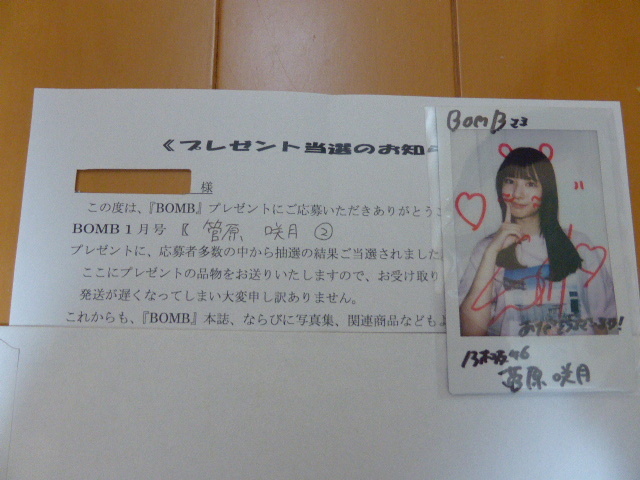 《プレゼント当選のお知
様
この度は、『BOMB』プレゼントにご応募いただきありがとうご
BOMB1月号 《 菅原 咲月 ②
プレゼントに、応募者多数の中から抽選の結果ご当選されました
ここにプレゼントの品物をお送りいたしますので、お受け取り
発送が遅くなってしまい大変申し訳ありません。
これからも、『BOMB』本誌、ならびに写真集、関連商品なども
BOMB
乃木坂46
菅原 咲月